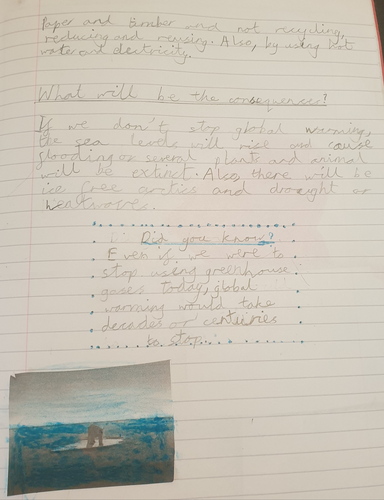 Paper and Bomber and not recycling,
reducing and reusing. Also, by using hot
water and electricity.
What will be the consequences?
If we don't stop global warming,
the sea levels will rise and cause
flooding or several plants and animal
will be extinct. Also, there will be
ice free arctics and drought or
heatwaves.
Did you know?
Even if we were to
stop using greenhouse
gases today, global
warming would take
decades or centuries
to stop.